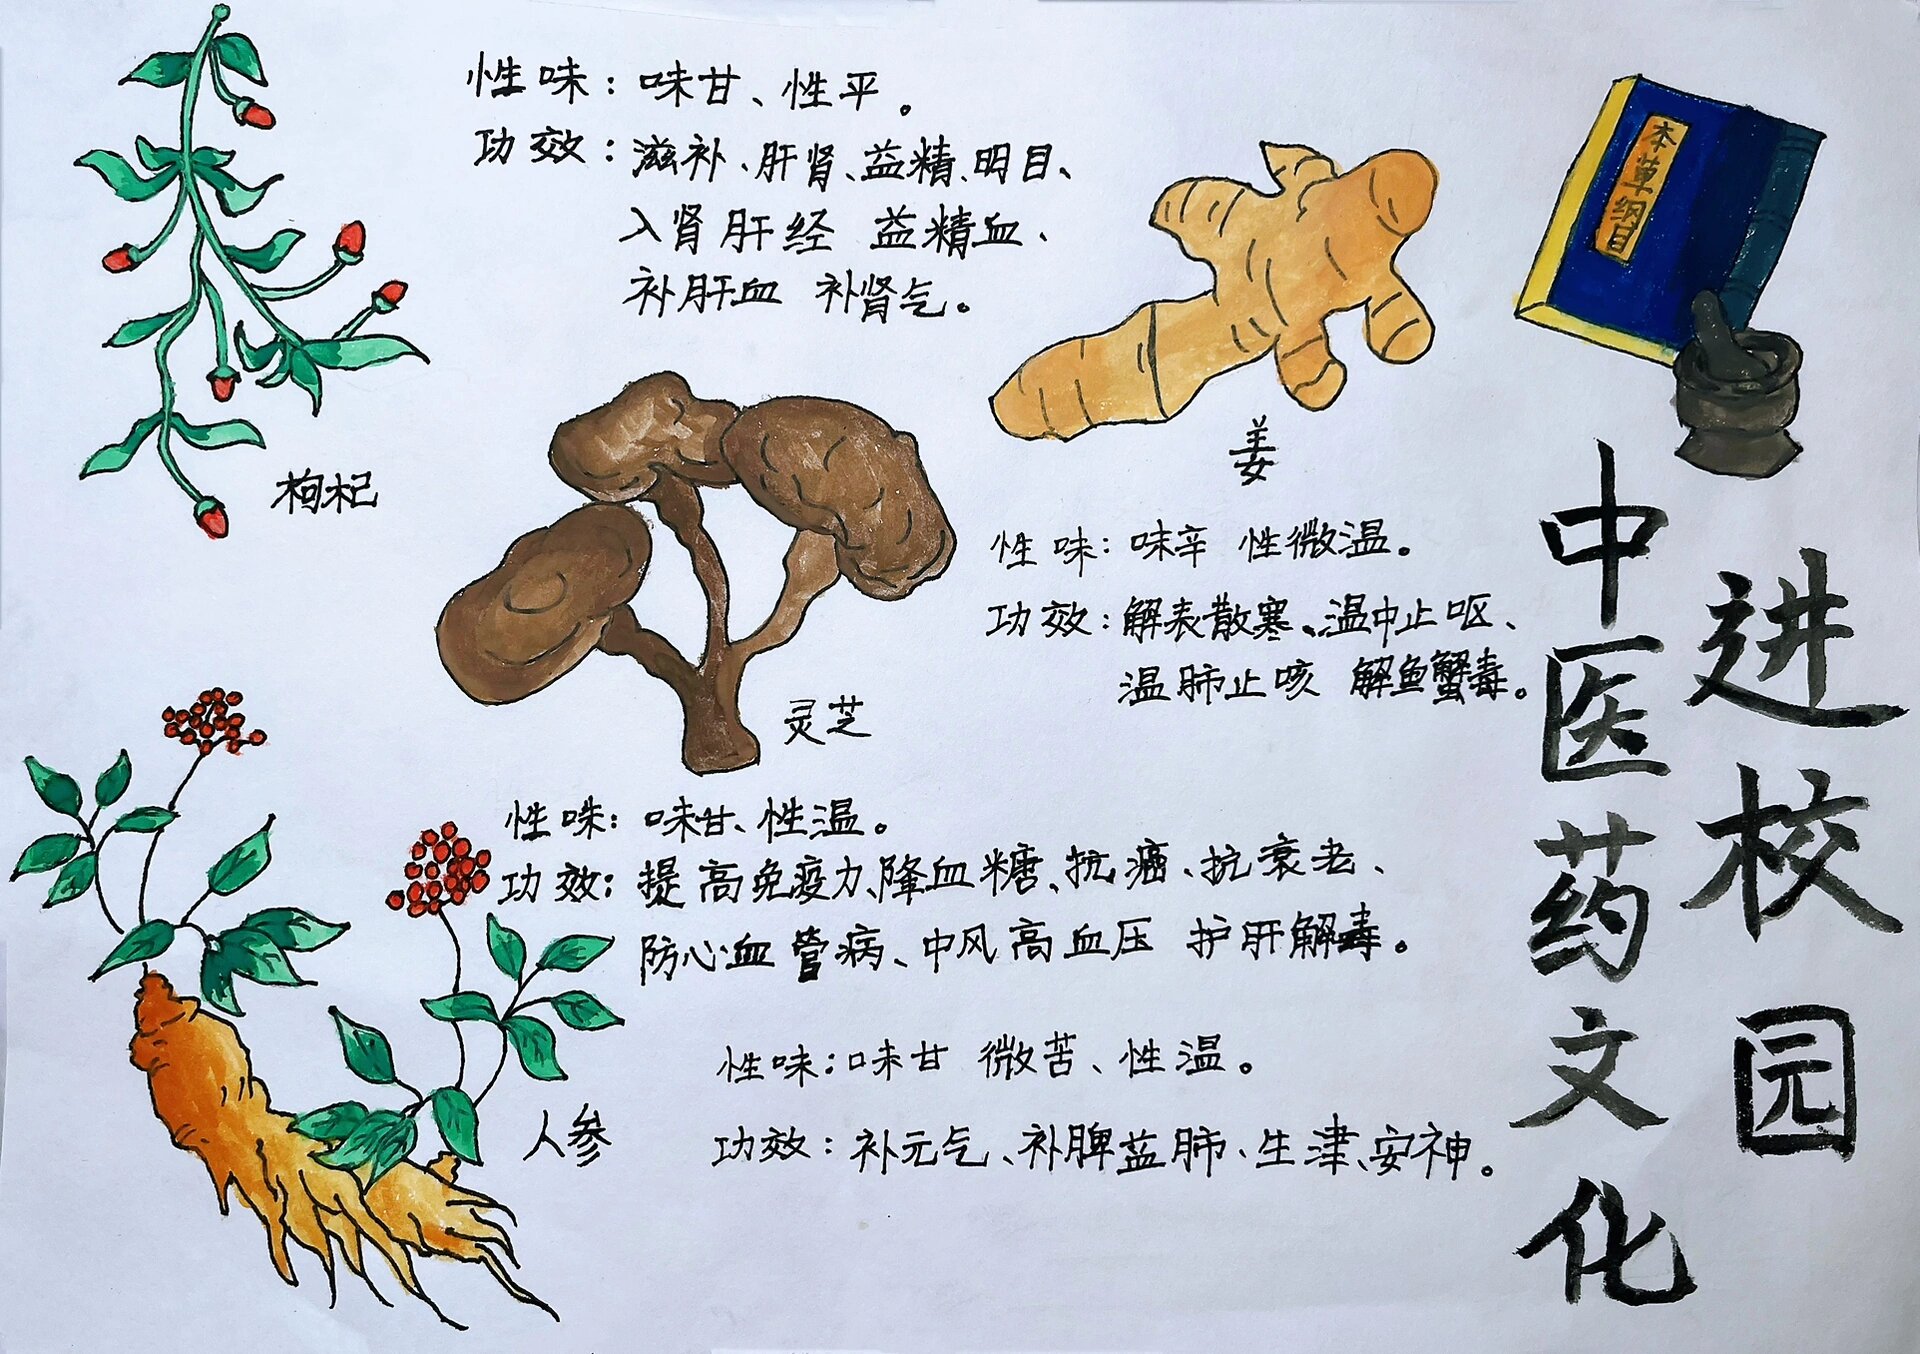 性味：味甘、性平。
功效：滋补、肝肾、益精、明目、
入肾肝经 益精血、
补肝血 补肾气。
枸杞
本草纲目
姜
性味：味辛 性微温。
功效：解表散寒、温中止呕、
温肺止咳 解鱼蟹毒。
灵芝
性味：味甘、性温。
功效：提高免疫力、降血糖、抗癌、抗衰老、
防心血管病、中风高血压 护肝解毒。
人参
性味：味甘 微苦、性温。
功效：补元气、补脾益肺、生津、安神。
中医药文化
进校园